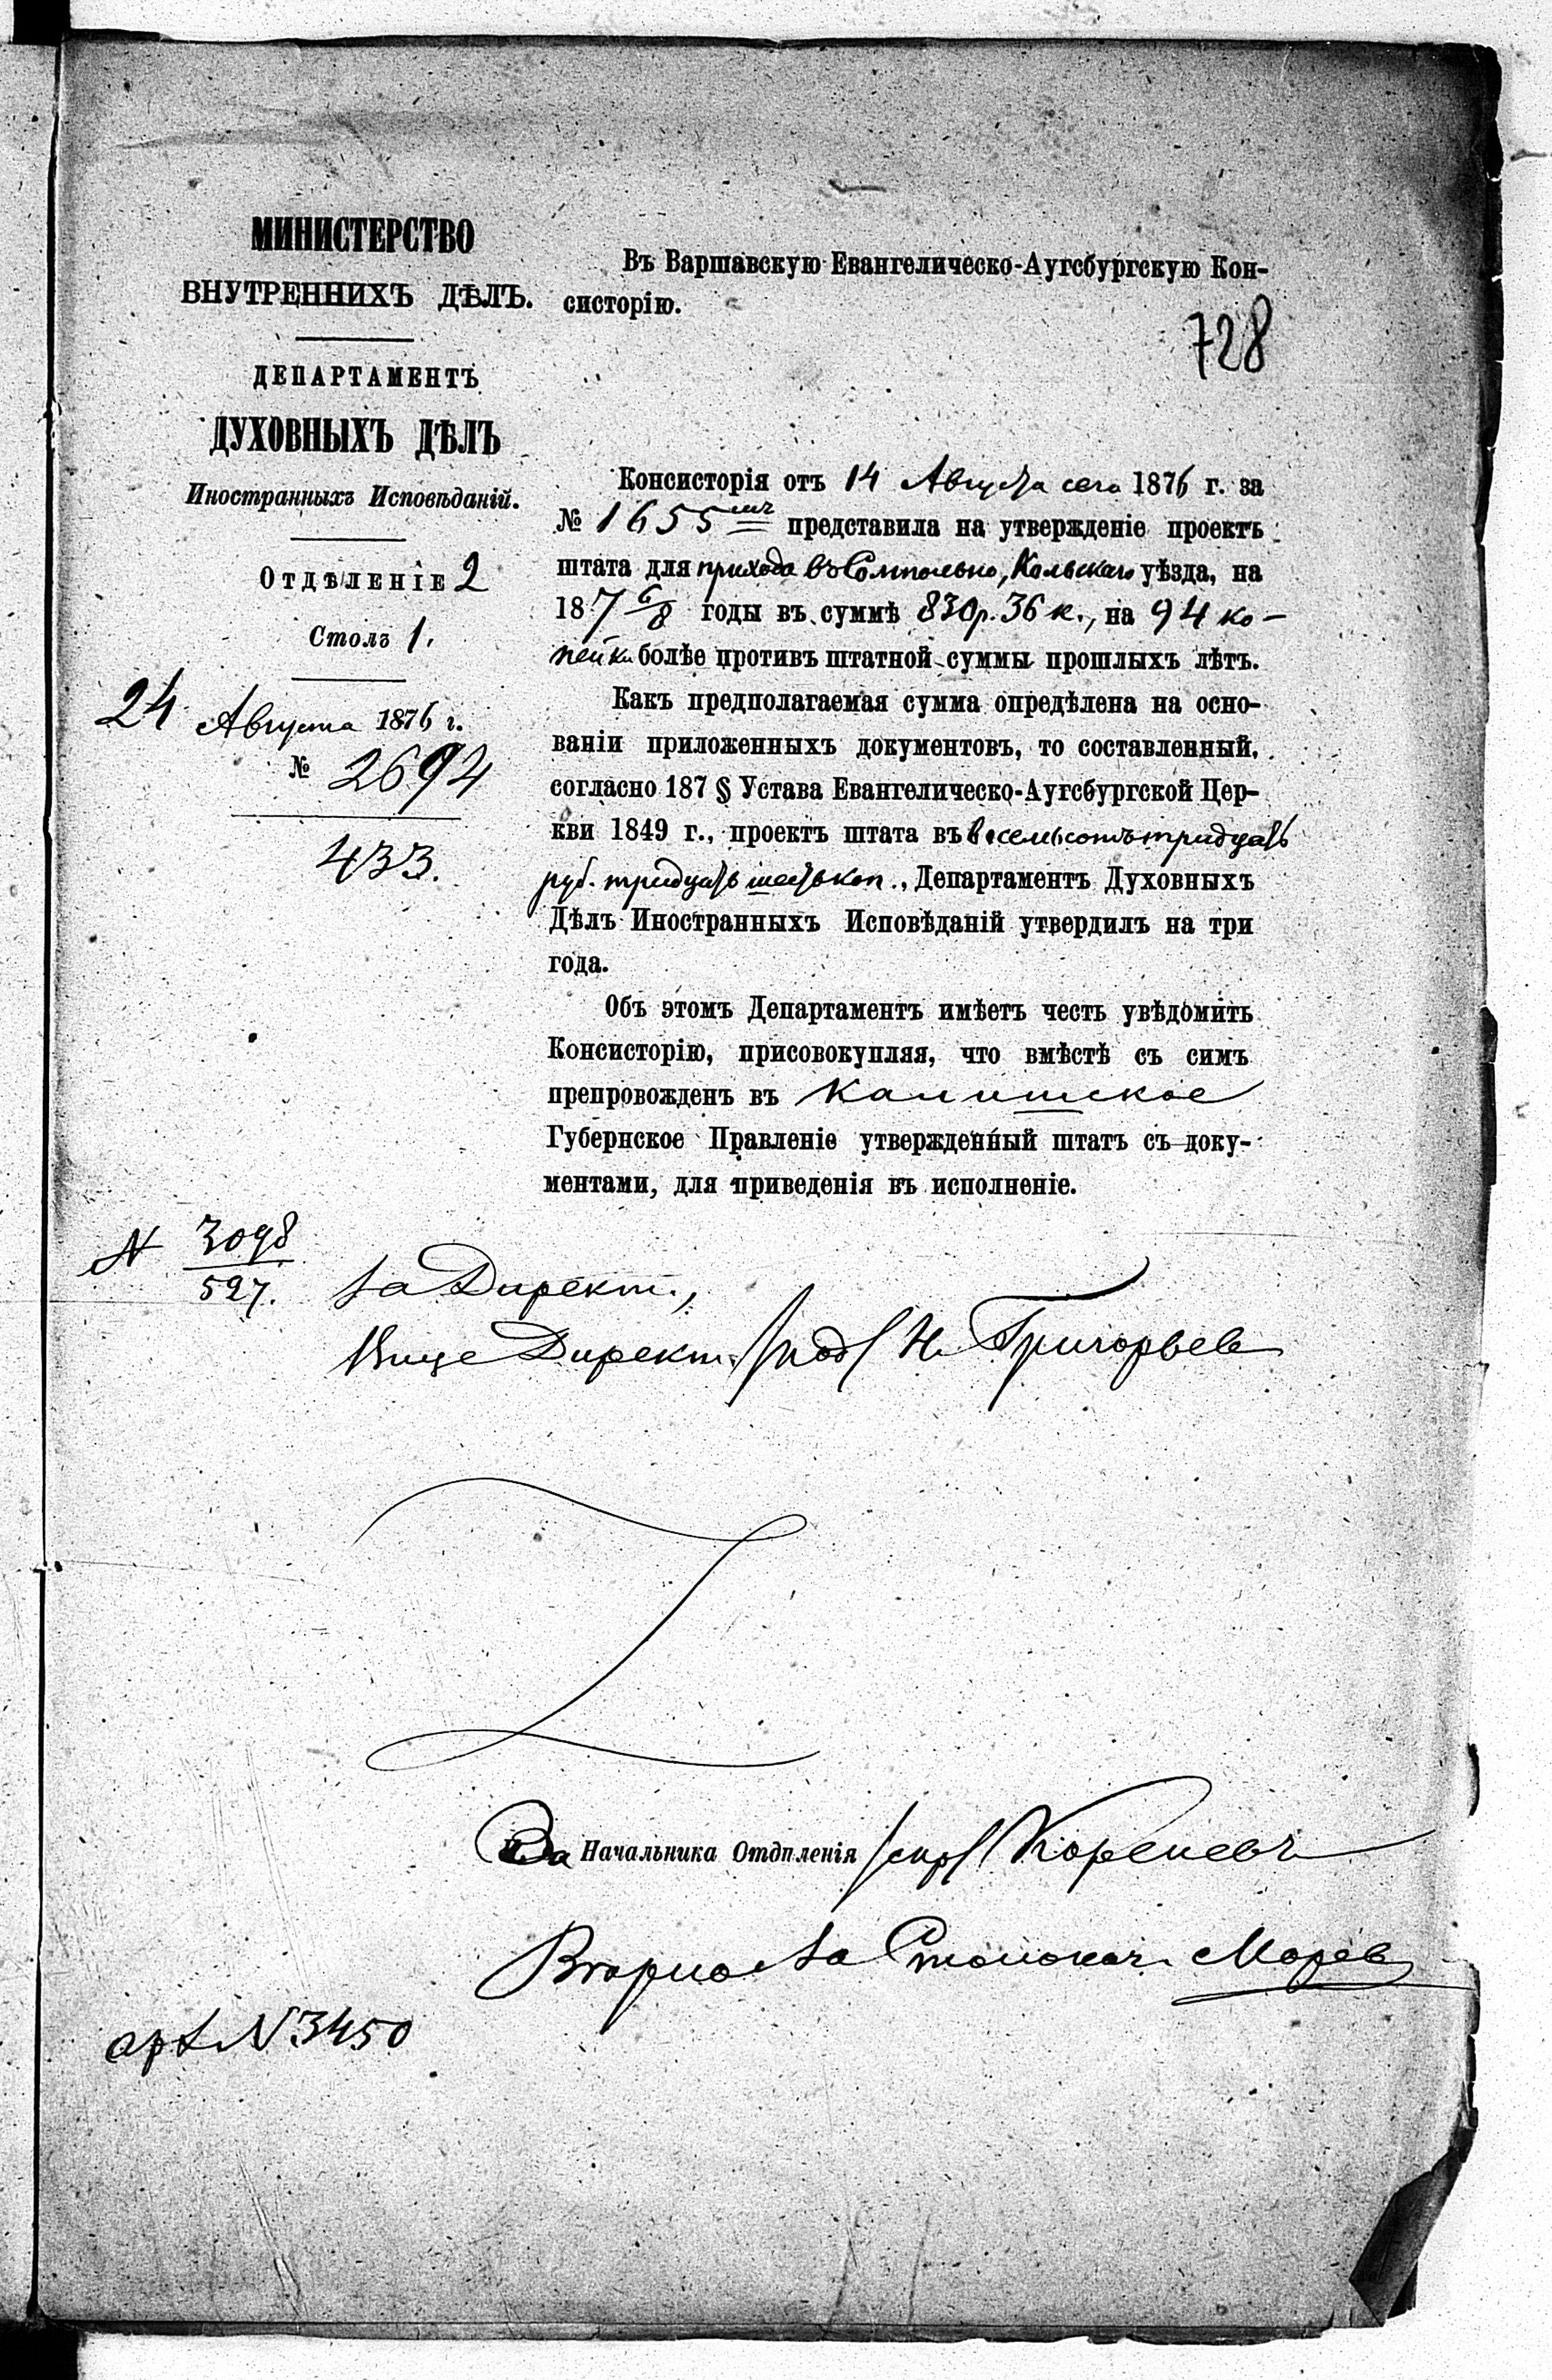 МИНИСТЕРСТВО
ВНУТРЕННИХЪ ДѢЛЪ.
ДЕПАРТАМЕНТЪ
ДУХОВНЫХЪ ДѢЛЪ
Иностранныхъ Исповѣданій.
ОТДѢЛЕНІЕ 2
Столъ 1.
24 Августа 1876 г.
№ 2694
433.
Въ Варшавскую Евангелическо-Аугсбургскую Кон-
систорію.
728
Консисторія отъ 14 Августа сего 1876 г. за
№ 1655 представила на утвержденіе проектъ
штата для прихода въ Сомпольно, Кольскаго уѣзда, на
187 6/8 годы въ суммѣ 830 р. 36 к., на 94 ко-
пейки болѣе противъ штатной суммы прошлыхъ лѣтъ.
Какъ предполагаемая сумма опредѣлена на осно-
ваніи приложенныхъ документовъ, то составленный,
согласно 187 § Устава Евангелическо-Аугсбургской Цер-
кви 1849 г., проектъ штата въ восемьсотъ тридцать
руб. тридцать шесть коп., Департаментъ Духовныхъ
Дѣлъ Иностранныхъ Исповѣданій утвердилъ на три
года.
Объ этомъ Департаментъ имѣетъ честь увѣдомить
Консисторію, присовокупляя, что вмѣстѣ съ симъ
препровожденъ въ Калишское
Губернское Правленіе утвержденный штатъ съ доку-
ментами, для приведенія въ исполненіе.
N 3098
527.
За Директ.,
Вице Директ. /под/ Н Григорьев
За Начальника Отдѣленія /скр/ Кореневъ
Вѣрно За Столонач. Морев
N 3450